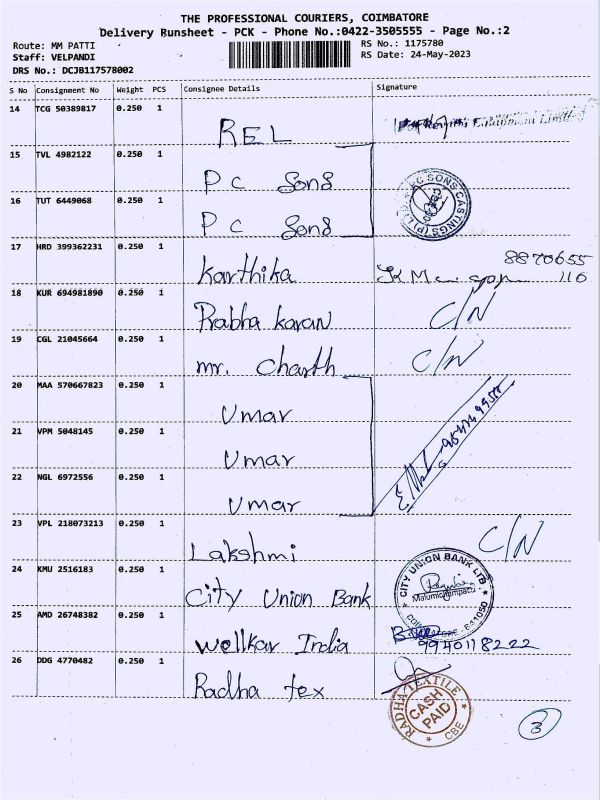 THE PROFESSIONAL COURIERS, COIMBATORE
Delivery Runsheet - PCK - Phone No.:0422-3505555 - Page No.:2
Route: MM PATTI RS No.: 1175780
Staff: VELPANDI RS Date: 24-May-2023
DRS No.: DCJB117578002
S No Consignment No Weight PCS Consignee Details Signature
14 TCG 50389817 0.250 1
REL
15 TVL 4982122 0.250 1
P C Sons
16 TUT 6449068 0.250 1
P C Sons
P C SONS CASTINGS (P) LTD
CBE
17 HRD 399362231 0.250 1
Karthika
8870655
116
18 KUR 694981890 0.250 1
Prabha karan C/N
19 CGL 21045664 0.250 1
mr. Charth C/N
20 MAA 570667823 0.250 1
Umar
21 VPM 5048145 0.250 1
Umar
22 NGL 6972556 0.250 1
Umar
23 VPL 218073213 0.250 1
Lakshmi C/N
24 KMU 2516183 0.250 1
City Union Bank
CITY UNION BANK LTD
Malumichampatti
641050
25 AMD 26748382 0.250 1
Wellkar India 9940118222
26 DDG 4770482 0.250 1
Radha tex
RADHA TEXTILE
CASH
PAID
CBE
3